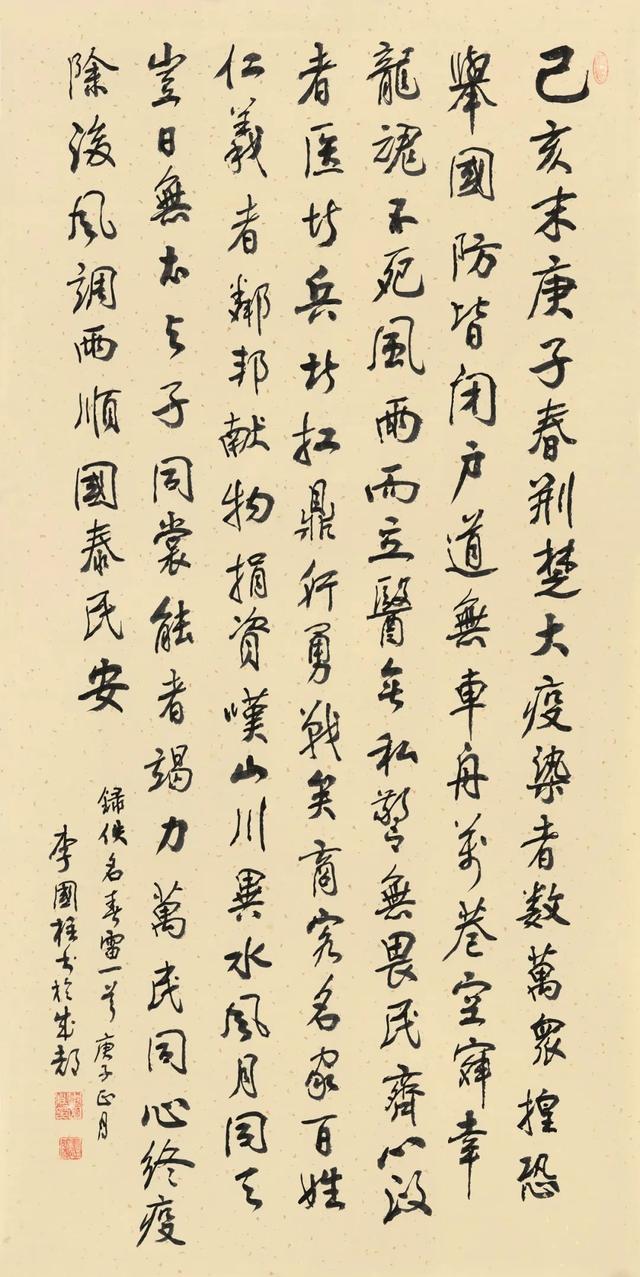 己亥末庚子春荆楚大疫染者数萬眾惶恐
舉國防皆閉户道無車舟萬巷空寂幸
龍魂不死風雨而立醫無私警無畏民齊心政
者医者兵者扛鼎行勇戰矣商客名家百姓
仁義者鄰邦献物捐資嘆山川異水風月同天
豈曰無衣与子同裳能者竭力萬民同心終疫
除後風調雨順國泰民安
録佚名春雷一首 庚子正月
李國柱书於成都